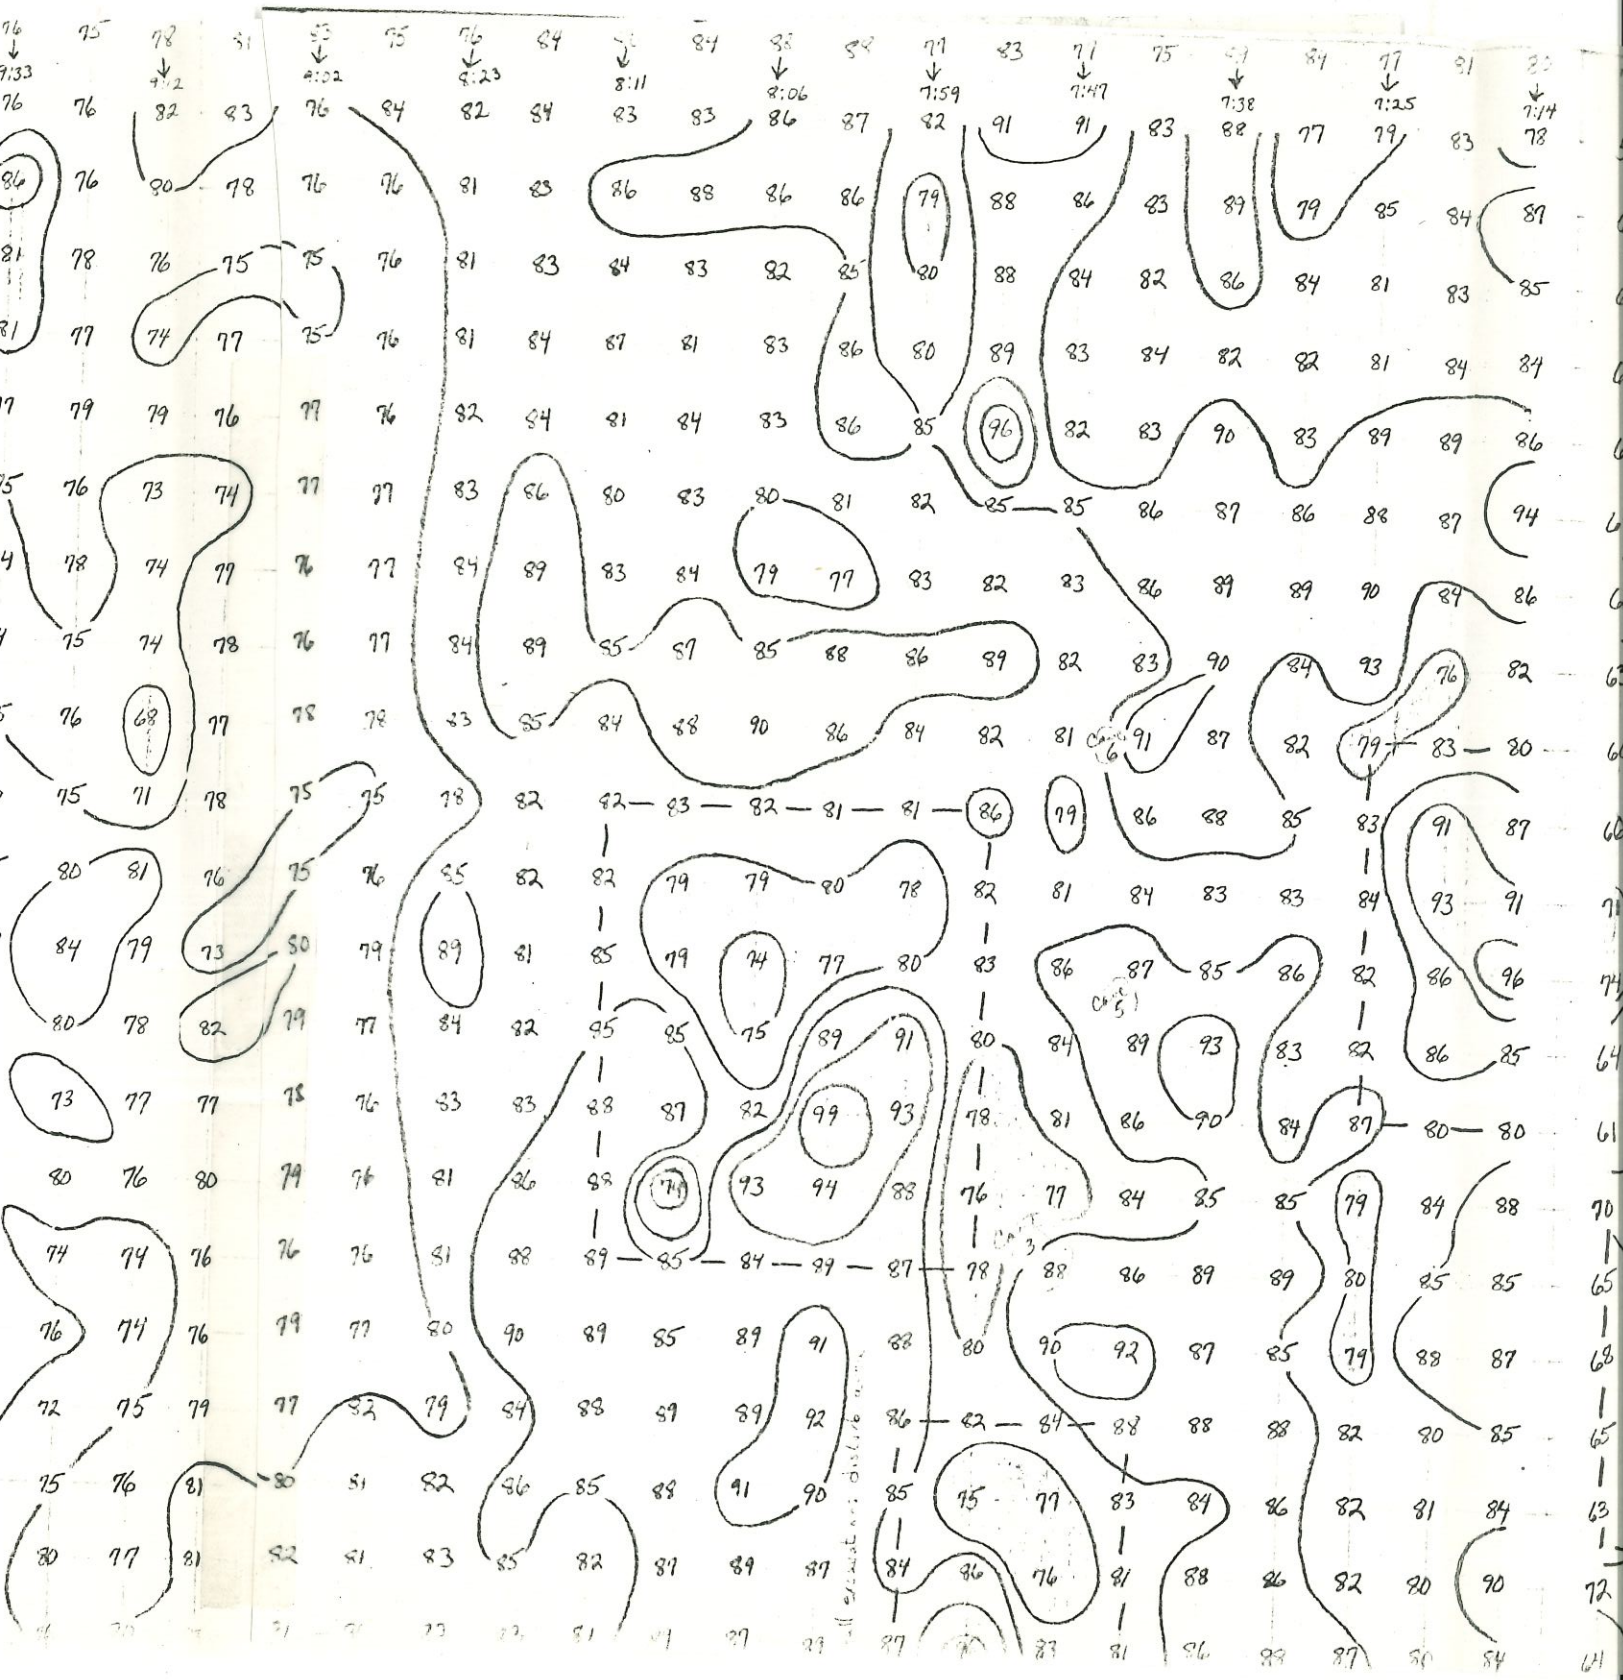 76 75 78 81 83 75 76 84 84 88 88 77 83 71 75 89 84 77 81 80
9:33 9:12 9:02 8:23 8:11 8:06 7:59 7:47 7:38 7:25 7:14
76 76 82 83 76 84 82 84 83 83 86 87 82 91 91 83 88 77 79 83 78
86 76 80 78 76 76 81 83 86 88 86 86 79 88 86 83 89 79 85 84 87
81 78 76 75 75 76 81 83 84 83 82 85 80 88 84 82 86 84 81 83 85
81 77 74 77 75 76 81 84 87 81 83 86 80 89 83 84 82 82 81 84 84
79 79 76 77 76 82 84 81 84 83 86 85 96 82 83 90 83 89 89 86
76 73 74 77 77 83 86 80 83 80 81 82 85 85 86 87 86 88 87 94
78 74 77 76 77 84 89 83 84 79 77 83 82 83 86 89 89 90 84 86
75 74 78 76 77 84 89 85 87 85 88 86 89 82 83 90 84 93 76 82 63
76 68 77 78 78 83 85 84 88 90 86 84 82 81 91 87 82 79 83 80
75 71 78 75 75 78 82 82 83 82 81 81 86 79 86 88 85 83 91 87 60
80 81 76 75 76 85 82 82 79 79 80 78 82 81 84 83 83 84 93 91 71
84 79 73 80 79 89 81 85 79 74 77 80 83 86 87 85 86 82 86 96 74
80 78 82 79 77 84 82 85 85 75 89 91 80 84 89 93 83 82 86 85 64
73 77 77 78 76 83 83 88 87 82 99 93 78 81 86 90 84 87 80 80 61
80 76 80 79 76 81 86 88 74 93 94 88 76 77 84 85 85 79 84 88 70
74 74 76 76 76 81 88 89 85 84 89 87 78 88 86 89 89 80 85 85 65
76 74 76 79 77 80 90 89 85 89 91 88 80 90 92 87 85 79 88 87 68
72 75 79 77 82 79 84 88 89 89 92 86 82 84 88 88 88 82 80 85 65
75 76 81 80 81 82 86 85 88 91 90 85 75 77 83 84 86 82 81 84 63
80 77 81 82 81 83 85 82 87 89 87 84 86 76 81 88 86 82 80 90 72
81 87 87 83 81 86 88 87 80 84 64